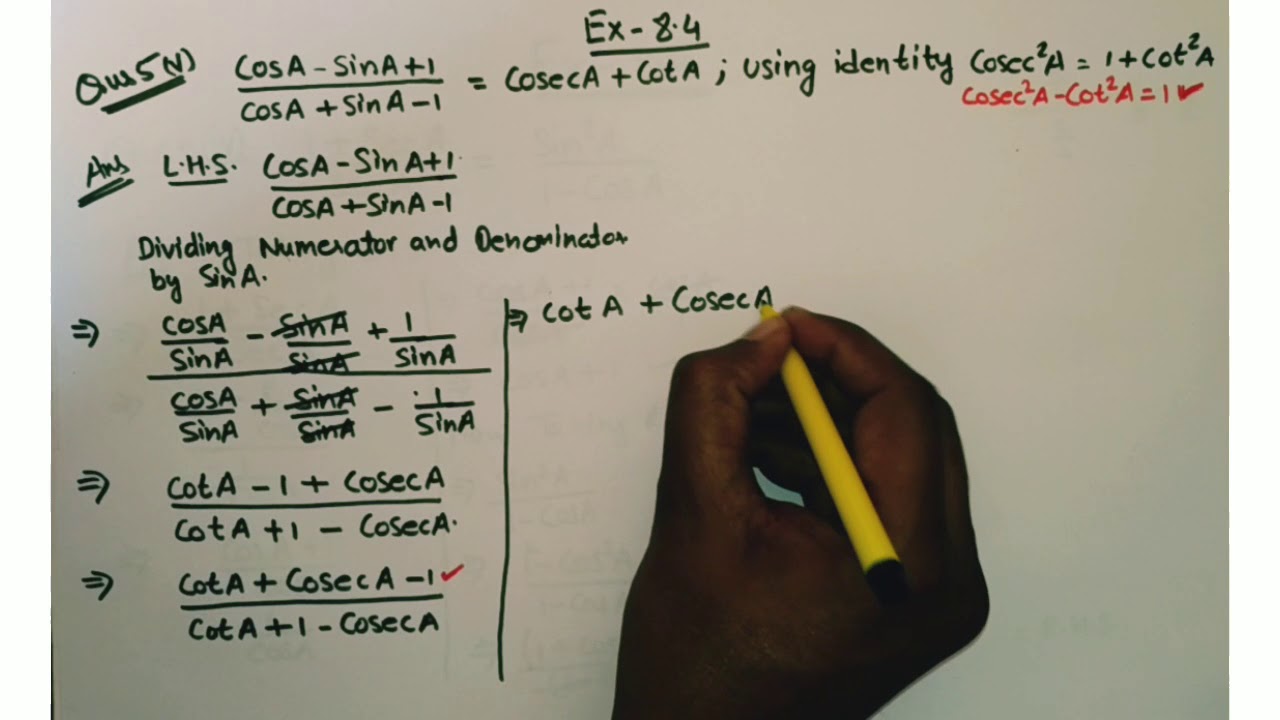 Ex - 8.4
Ques 5(V) CosA - SinA + 1 / CosA + SinA - 1 = CosecA + CotA ; using identity Cosec²A = 1 + Cot²A
Cosec²A - Cot²A = 1 ✓
Ans L.H.S. CosA - SinA + 1 / CosA + SinA - 1
Dividing Numerator and Denominator
by SinA.
⇒ CosA/SinA - SinA/SinA + 1/SinA
CosA/SinA + SinA/SinA - 1/SinA
⇒ CotA - 1 + CosecA
CotA + 1 - CosecA.
⇒ CotA + CosecA - 1 ✓
CotA + 1 - CosecA
⇒ CotA + CosecA